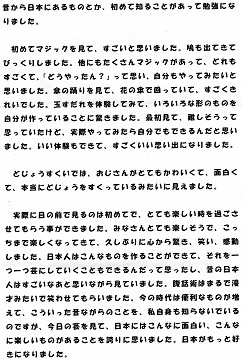 昔から日本にあるものとか、初めて知ることがあって勉強にな
りました。
初めてマジックを見て、すごいと思いました。鳩も出てきて
びっくりしました。他にもたくさんマジックがあって、どれも
すごくて、「どうやったん？」って思い、自分もやってみたいと
思いました。傘の踊りを見て、花の傘で回っていて、すごくき
れいでした。玉すだれを体験してみて、いろいろな形のものを
自分が作っていることに驚きました。最初見て、難しそうって
思っていたけど、実際やってみたら自分でもできるんだと思い
ました。いい体験もできて、すごくいい思い出になりました。
どじょうすくいでは、おじさんがとてもかわいくて、面白く
て、本当にどじょうをすくっているみたいに見えました。
実際に目の前で見るのは初めてで、とても楽しい時を過ごさ
せてもらう事ができました。みなさんとても楽しそうで、こっ
ちまで楽しくなってきて、久しぶりに心から驚き、笑い、感動
しました。日本人はこんなものを作ることができて、それを一
つ一つ芸にしていくこともできるんだって思ったし、昔の日本
人はすごいなあと思いながら見ていました。腹話術はまるで漫
才みたいで笑わせてもらいました。今の時代は便利なものが増
えて、こういった昔ながらのことを、私自身も知らないでいる
のですが、今日の芸を見て、日本にはこんなに面白い、こんな
に楽しいものがあることを誇りに思いました。日本がもっと好
きになりました。